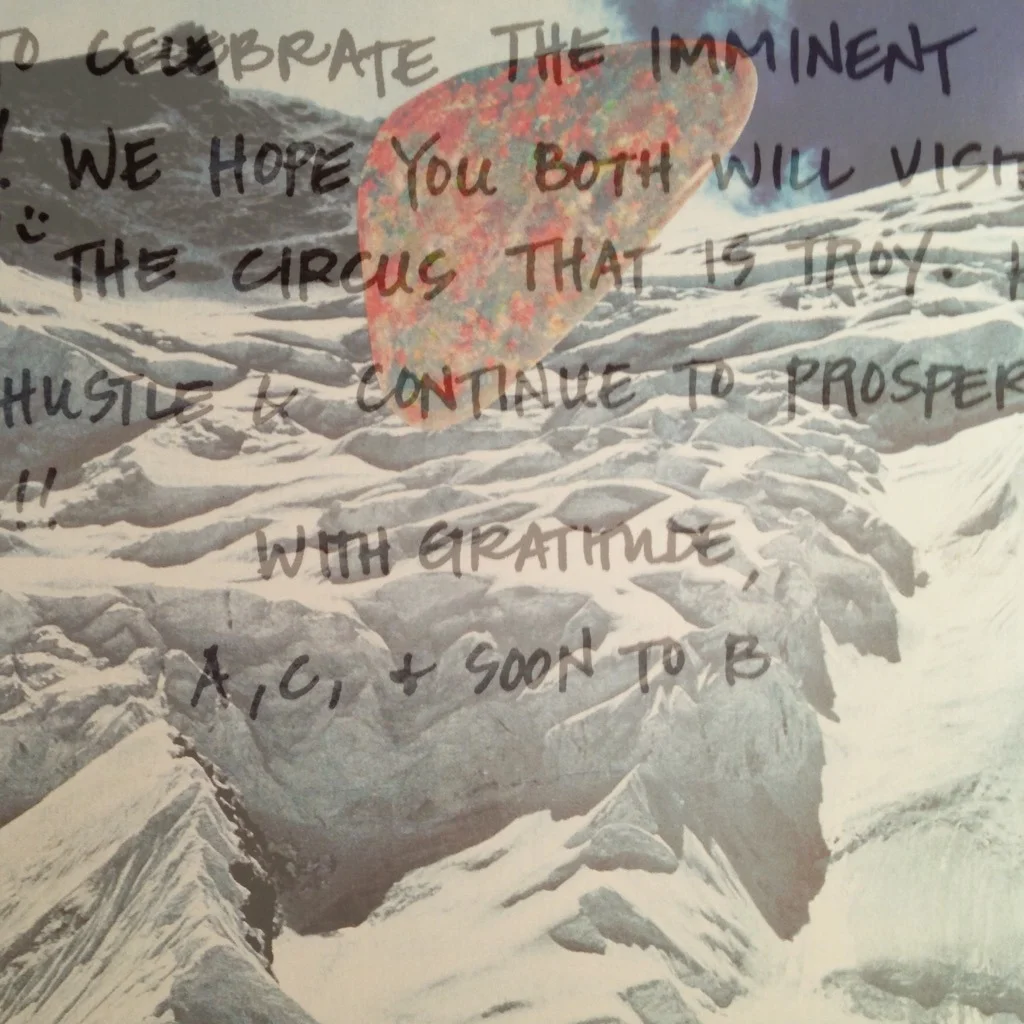 TO CELEBRATE THE IMMINENT
! WE HOPE YOU BOTH WILL VISIT
THE CIRCUS THAT IS TROY.
HUSTLE & CONTINUE TO PROSPER
!!
WITH GRATITUDE,
A, C, + SOON TO B